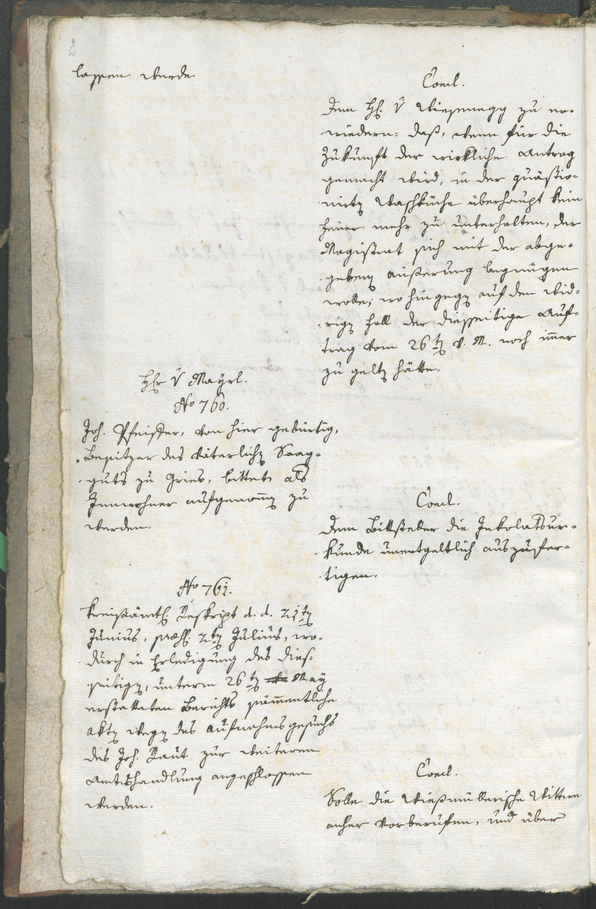 2
lassen werde.
Concl.
Dem H. v Wiesenegg zu er-
wiedern: daß, wenn für die
Zukunft der wirkliche Antrag
gemacht wird, in der quästio-
nirten Waschküche überhaupt kein
Feuer mehr zu unterhalten, der
Magistrat sich mit der abge-
gebenen Äußerung begnügen
wolle; wohingegen auf den wid-
rigen Fall der diesseitige Auf-
trag vom 26ten d. M. noch immer
zu gelten hätte.
Hr. v Mayrl.
No 760.
Joh. Pfeiffer, von hier gebürtig,
Besitzer des väterlichen Saag-
guts zu Gries, bittet als
Innwohner aufgenomen zu
werden.
Concl.
Dem Bittsteller die Inkolatsur-
kunde unentgeltlich auszufer-
tigen.
No 761.
Kreisämtl. Reskript d. d. 21ten
Junius, praes. 2ten Julius, wo-
durch in Erledigung des dies-
seitigen, unterm 26ten May
erstatteten Berichts sämmentliche
Akten wegen des Aufnahmsgesuchs
des Joh. Raut zur weiteren
Amtshandlung angeschlossen
werden.
Concl.
Solle die Wießmüllerische Wittwe
anher vorberufen, und über